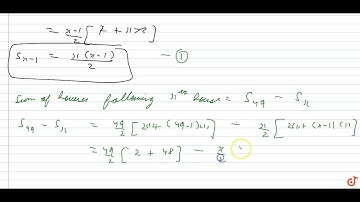 = x-1/2 [ 2 + x-2 ]
S x-1 = x(x-1)/2 — ①
Sum of houses following xth house = S49 - Sx
S49 - Sx = 49/2 [ 2(1) + (49-1)(1) ] - x/2 [ 2(1) + (x-1)(1) ]
= 49/2 [ 2 + 48 ] - x/2